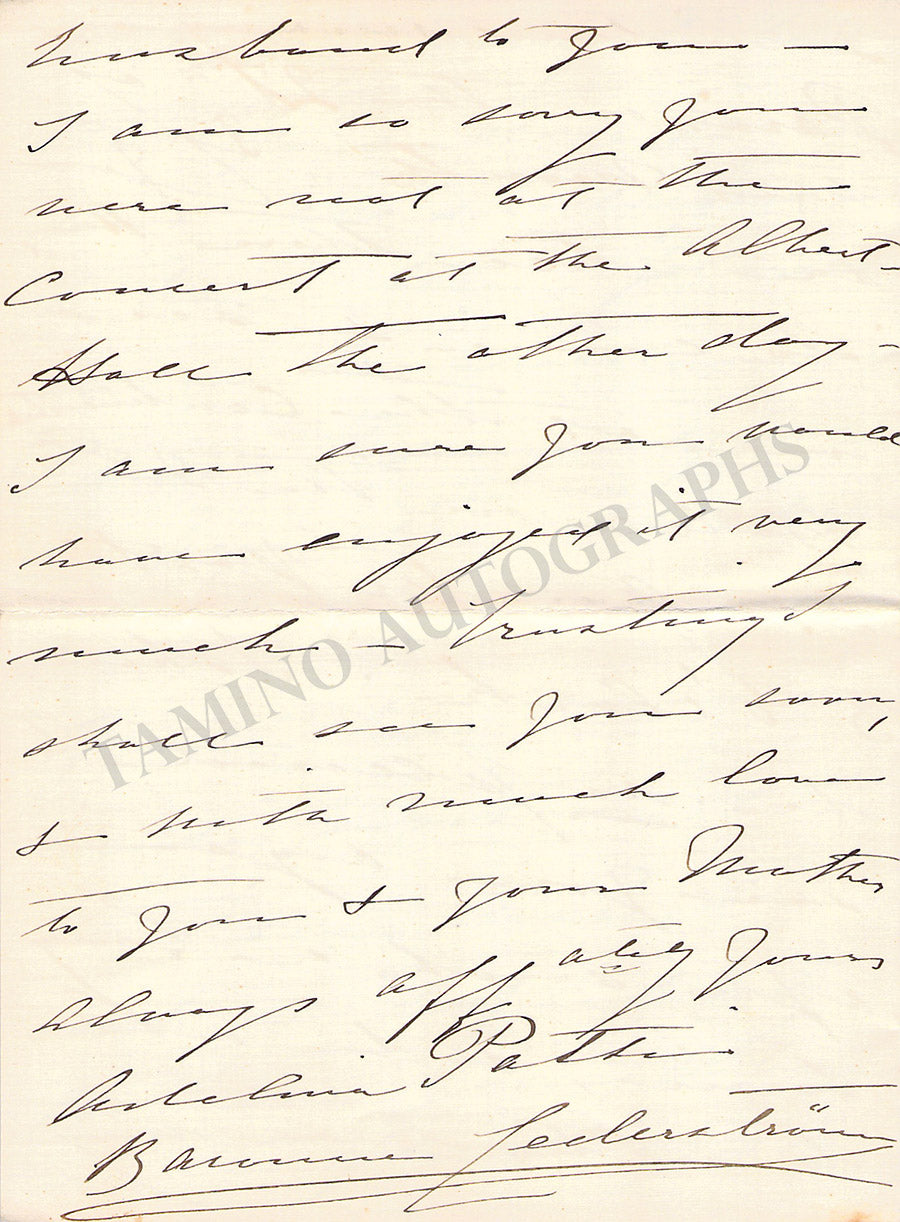 husband to you —
I am so sorry you
were not at the
Concert at the Albert-
Hall the other day -
I am sure you would
have enjoyed it very
much — Trusting I
shall see you soon,
& with much love
to you & your Mother
always affately yours
Adelina Patti.
Baronne Cederström
TAMINO AUTOGRAPHS